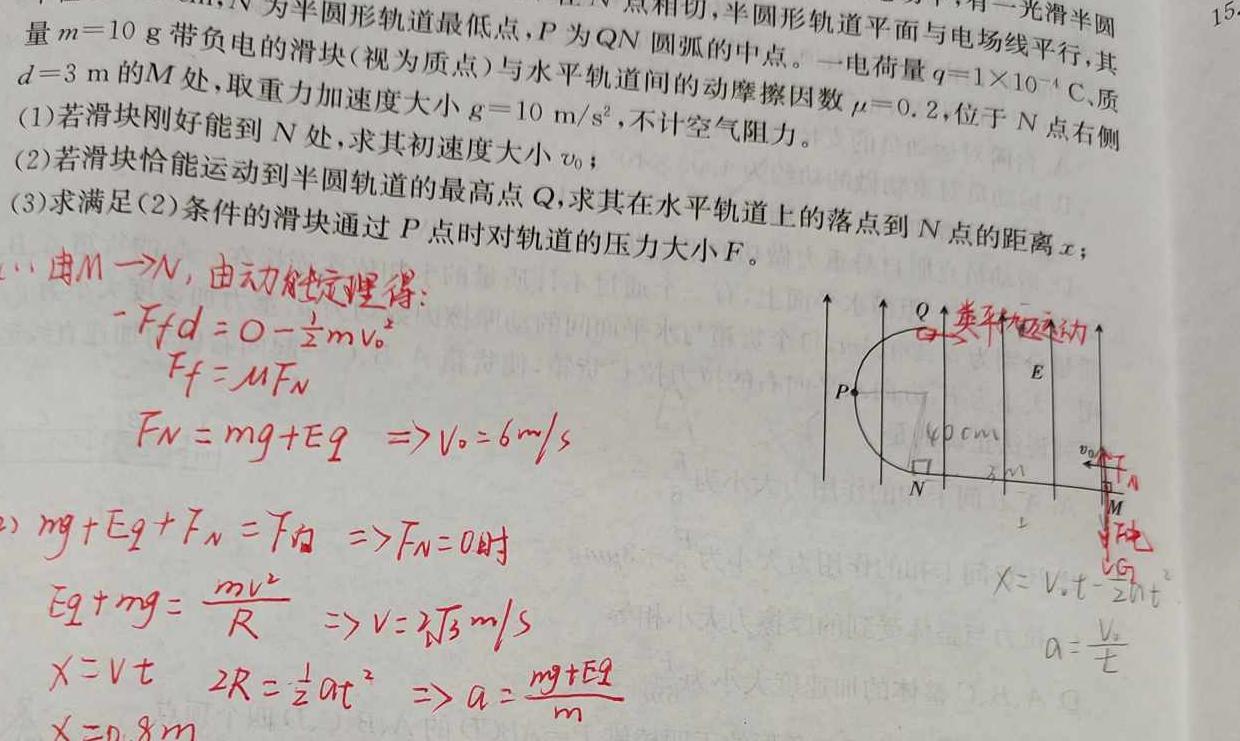 N 为半圆形轨道最低点,P 为QN 圆弧的中点。一电荷量 q=1×10⁻⁴ C、质
点相切,半圆形轨道平面与电场线平行,其
有一光滑半圆
量 m=10 g 带负电的滑块(视为质点)与水平轨道间的动摩擦因数 μ=0.2,位于 N 点右侧
d=3 m 的M 处,取重力加速度大小 g=10 m/s²,不计空气阻力。
(1)若滑块刚好能到 N 处,求其初速度大小 v₀;
(2)若滑块恰能运动到半圆轨道的最高点 Q,求其在水平轨道上的落点到 N 点的距离 x;
(3)求满足(2)条件的滑块通过 P 点时对轨道的压力大小 F。
由M→N, 由动能定理得:
-Ffd=0-½mv₀²
Ff=μFN
FN=mg+Eq ⇒V₀=6m/s
2) mg+Eq+FN=F向 ⇒FN=0时
Eq+mg=mv²/R ⇒V=2√3m/s
X=Vt 2R=½at² ⇒a=mg+Eq/m
X=0.8m
Q
E
P
40cm
v₀
FN
N
3m
M
F电
G
X=V₀t-½at²
a=V₀/t
15